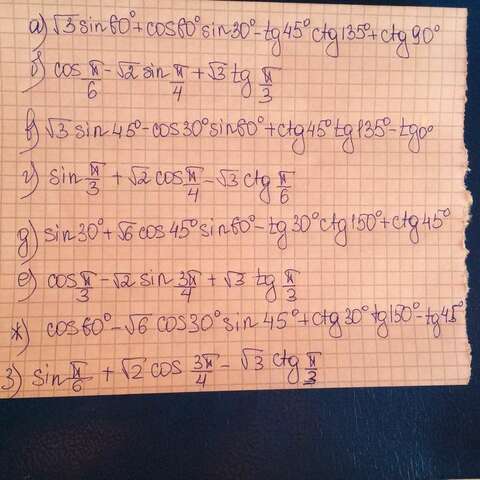 а) √3 sin60°+cos60° sin30°-tg45° ctg135°+ctg90°
б) cos π/6 - √2 sin π/4 + √3 tg π/3
в) √3 sin45°-cos30° sin60°+ctg45° tg135°-tg0°
г) sin π/3 + √2 cos π/4 - √3 ctg π/6
д) sin30°+√6 cos45° sin60°-tg30° ctg150°+ctg45°
е) cos π/3 - √2 sin 3π/4 + √3 tg π/3
ж) cos60°-√6 cos30° sin45°+ctg30° tg150°-tg45°
з) sin π/6 + √2 cos 3π/4 - √3 ctg π/3